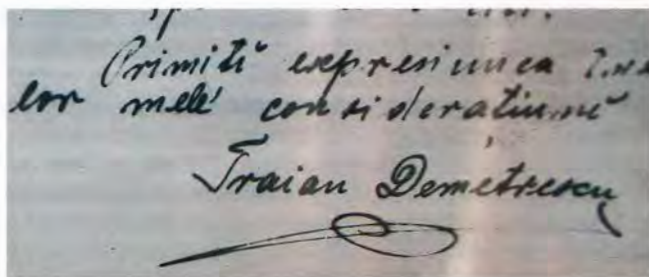 Primiți expresiunea
lor mele considerațiuni
Traian Demetrescu